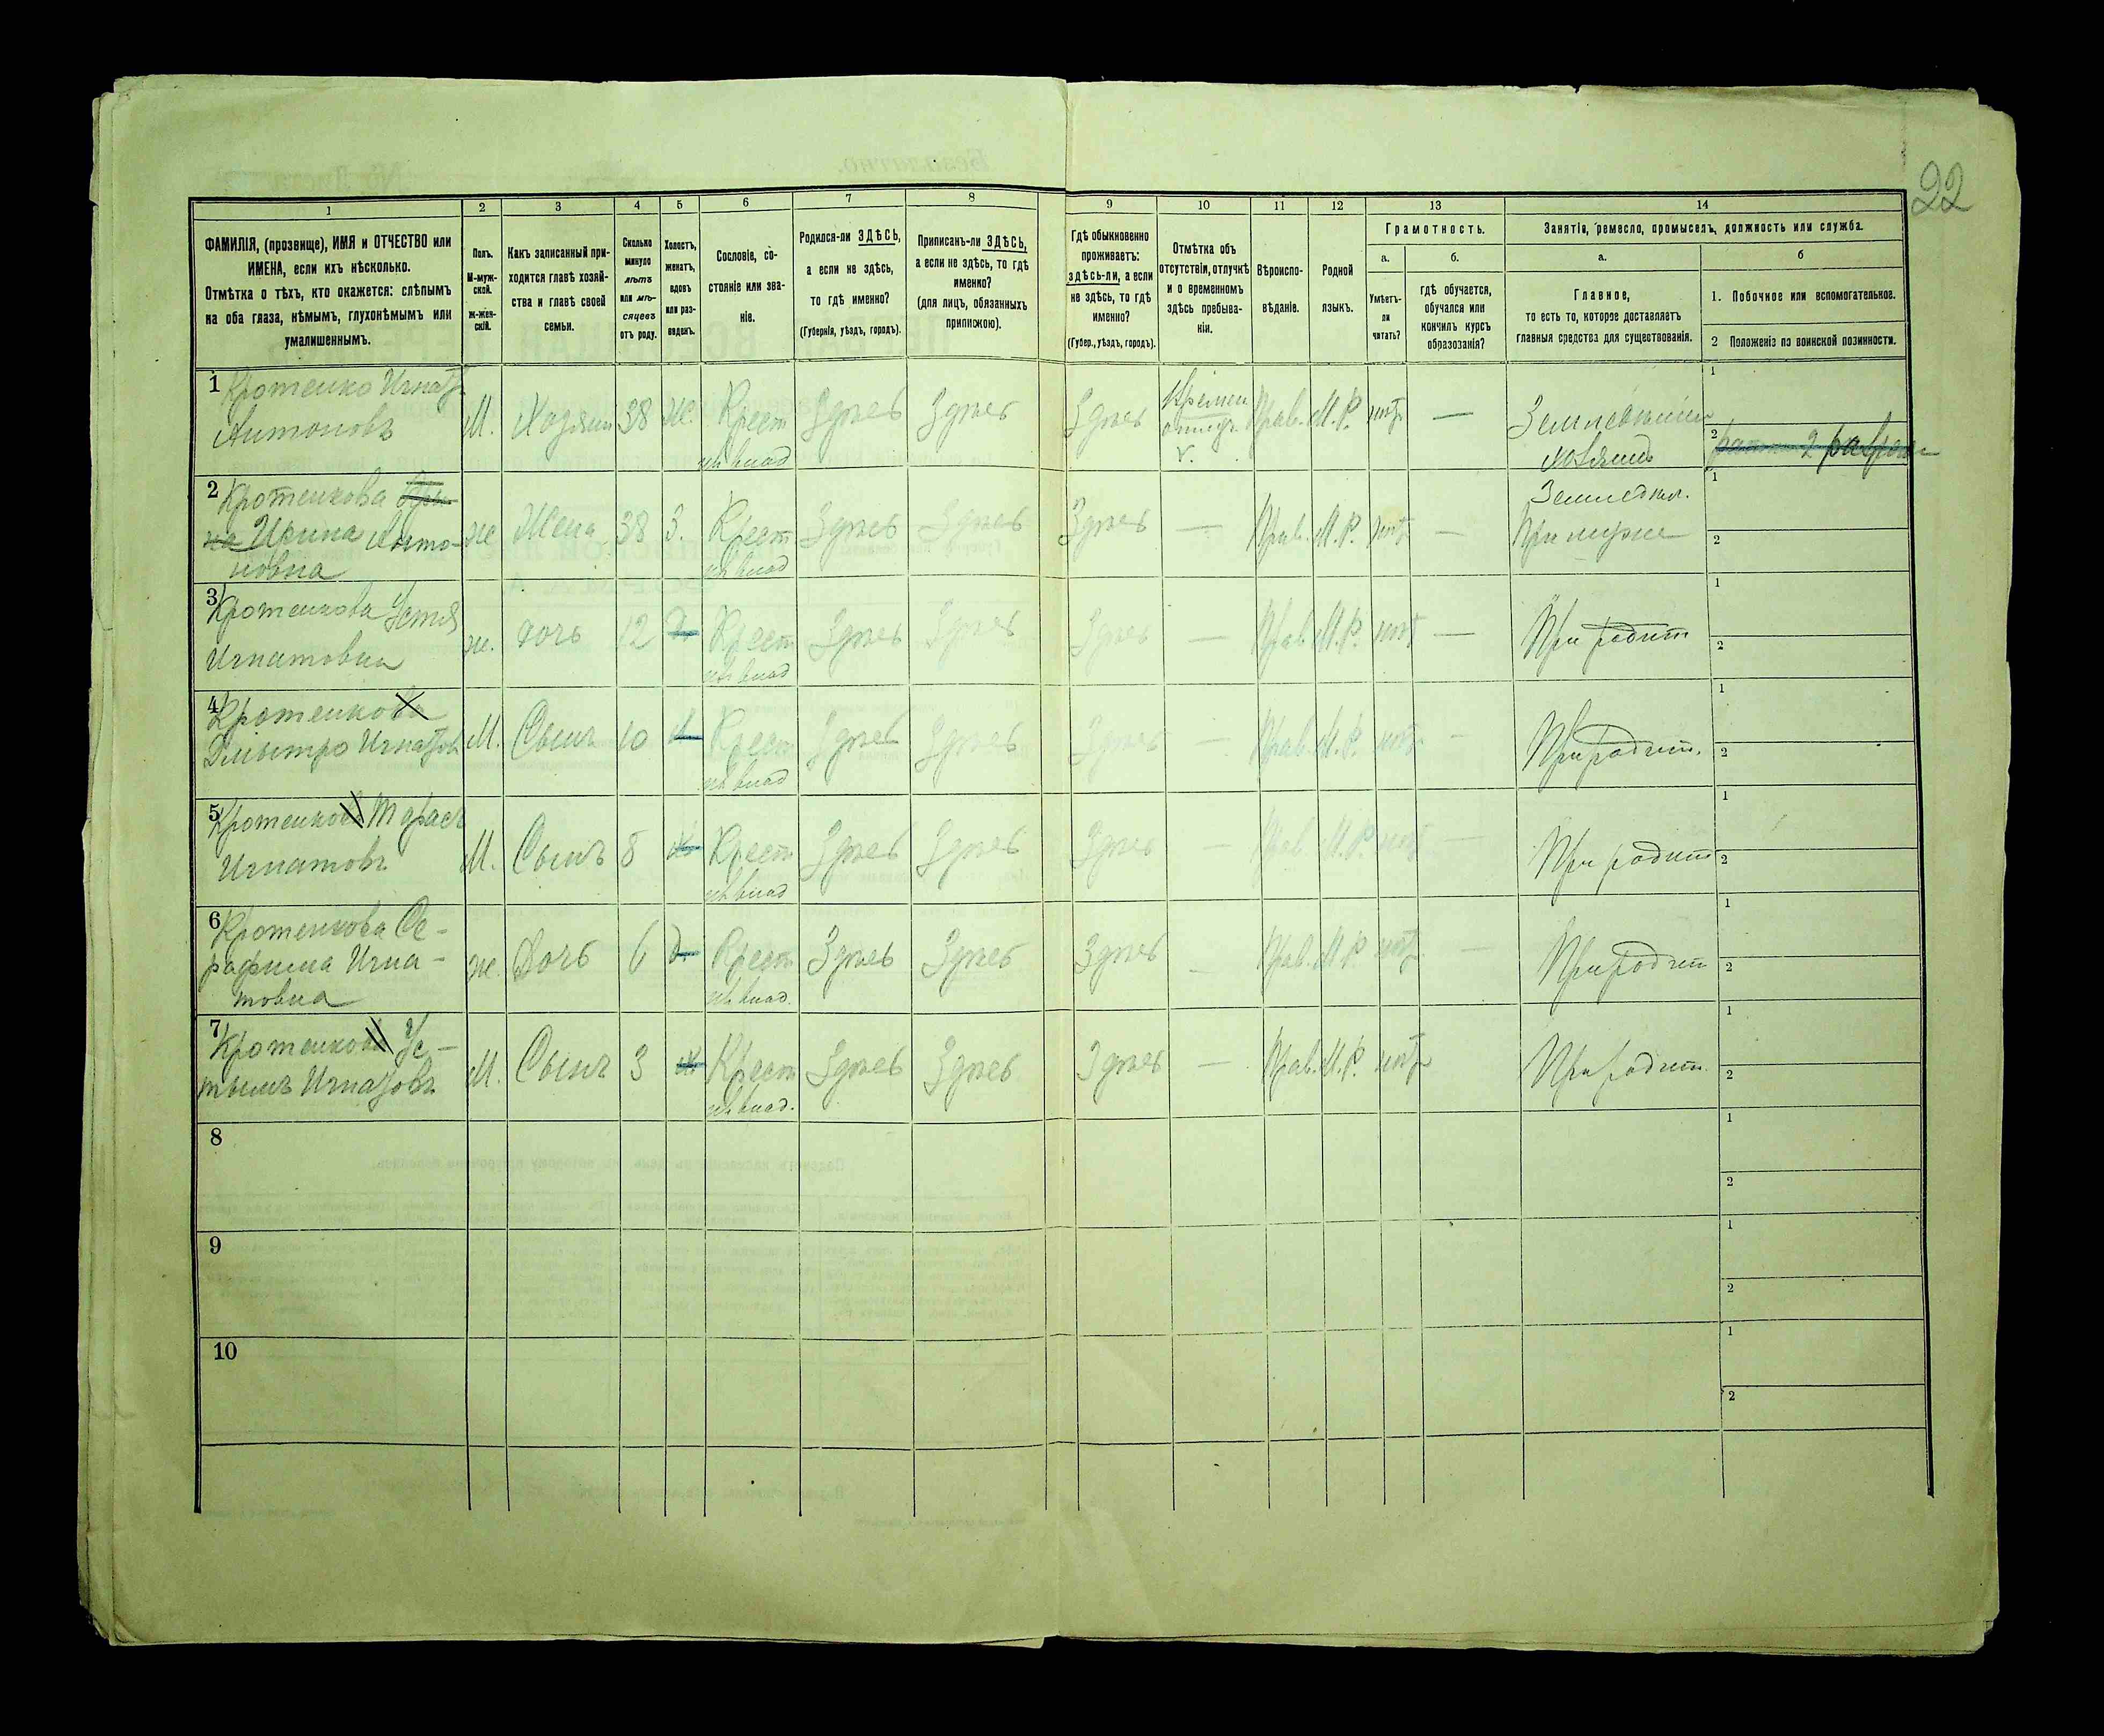 22
1
2
3
4
5
6
7
8
9
10
11
12
13
14
ФАМИЛІЯ, (прозвище), ИМЯ и ОТЧЕСТВО или
ИМЕНА, если ихъ нѣсколько.
Отмѣтка о тѣхъ, кто окажется: слѣпымъ
на оба глаза, нѣмымъ, глухонѣмымъ или
умалишеннымъ.
Полъ.
М-муж-
ской.
ж-жен-
скій.
Какъ записанный при-
ходится главѣ хозяй-
ства и главѣ своей
семьи.
Сколько
минуло
лѣтъ
или мѣ-
сяцевъ
отъ роду.
Холостъ,
женатъ,
вдовъ
или раз-
веденъ.
Сословіе, со-
стояніе или зва-
ніе.
Родился-ли ЗДѢСЬ,
а если не здѣсь,
то гдѣ именно?
(Губернія, уѣздъ, городъ).
Приписанъ-ли ЗДѢСЬ,
а если не здѣсь, то гдѣ
именно?
(для лицъ, обязанныхъ
припиською).
Гдѣ обыкновенно
проживаетъ:
здѣсь-ли, а если
не здѣсь, то гдѣ
именно?
(Губер., уѣздъ, городъ).
Отмѣтка объ
отсутствіи, отлучкѣ
и о временномъ
здѣсь пребыва-
ніи.
Вѣроиспо-
вѣданіе.
Родной
языкъ.
Грамотность.
а.
Умѣетъ-
ли
читать?
б.
гдѣ обучается,
обучался или
кончилъ курсъ
образованія?
Занятіе, ремесло, промыселъ, должность или служба.
а.
Главное,
то есть то, которое доставляетъ
главныя средства для существованія.
б
1. Побочное или вспомогательное.
2 Положеніе по воинской повинности.
1 Кротенко Игнатъ
Антоновъ
М. Хозяин 38 Ж. Крест
из влад
Здѣсь Здѣсь Здѣсь
Прав. М.Р. нѣт —
хозяинъ
1
2
2 Кротенкова
Ирина Анто-
новна
ж Жена 38 З. Крест
из влад
Здѣсь Здѣсь Здѣсь — Прав. М.Р. нѣт —
Земледѣл.
При муже
1
2
3 Кротенкова Устя
Игнатовна
ж. дочь 12 Крест
из влад
Здѣсь Здѣсь Здѣсь — Прав М.Р. нѣт —
При родит
1
2
4 Кротенкова
Дмытро Игнатов
М. Сынъ 10 Крест
из влад
Здѣсь Здѣсь Здѣсь — Прав. М.Р. нѣт —
При родит.
1
2
5 Кротенков Тарас
Игнатовъ
М. Сынъ 8 Крест
из влад
Здѣсь Здѣсь Здѣсь — Прав М.Р. нѣт —
При родит
1
2
6 Кротенкова Се-
рафима Игна-
товна
ж. Дочь 6 Крест
из влад.
Здѣсь Здѣсь Здѣсь — Прав. М.Р. нѣт —
При родит
1
2
7 Кротенкова Ус-
тымъ Игнатовъ
М. Сынъ 3 Крест
из влад.
Здѣсь Здѣсь Здѣсь — Прав. М.Р. нѣт
При родит.
1
2
8
1
2
9
1
2
10
1
2